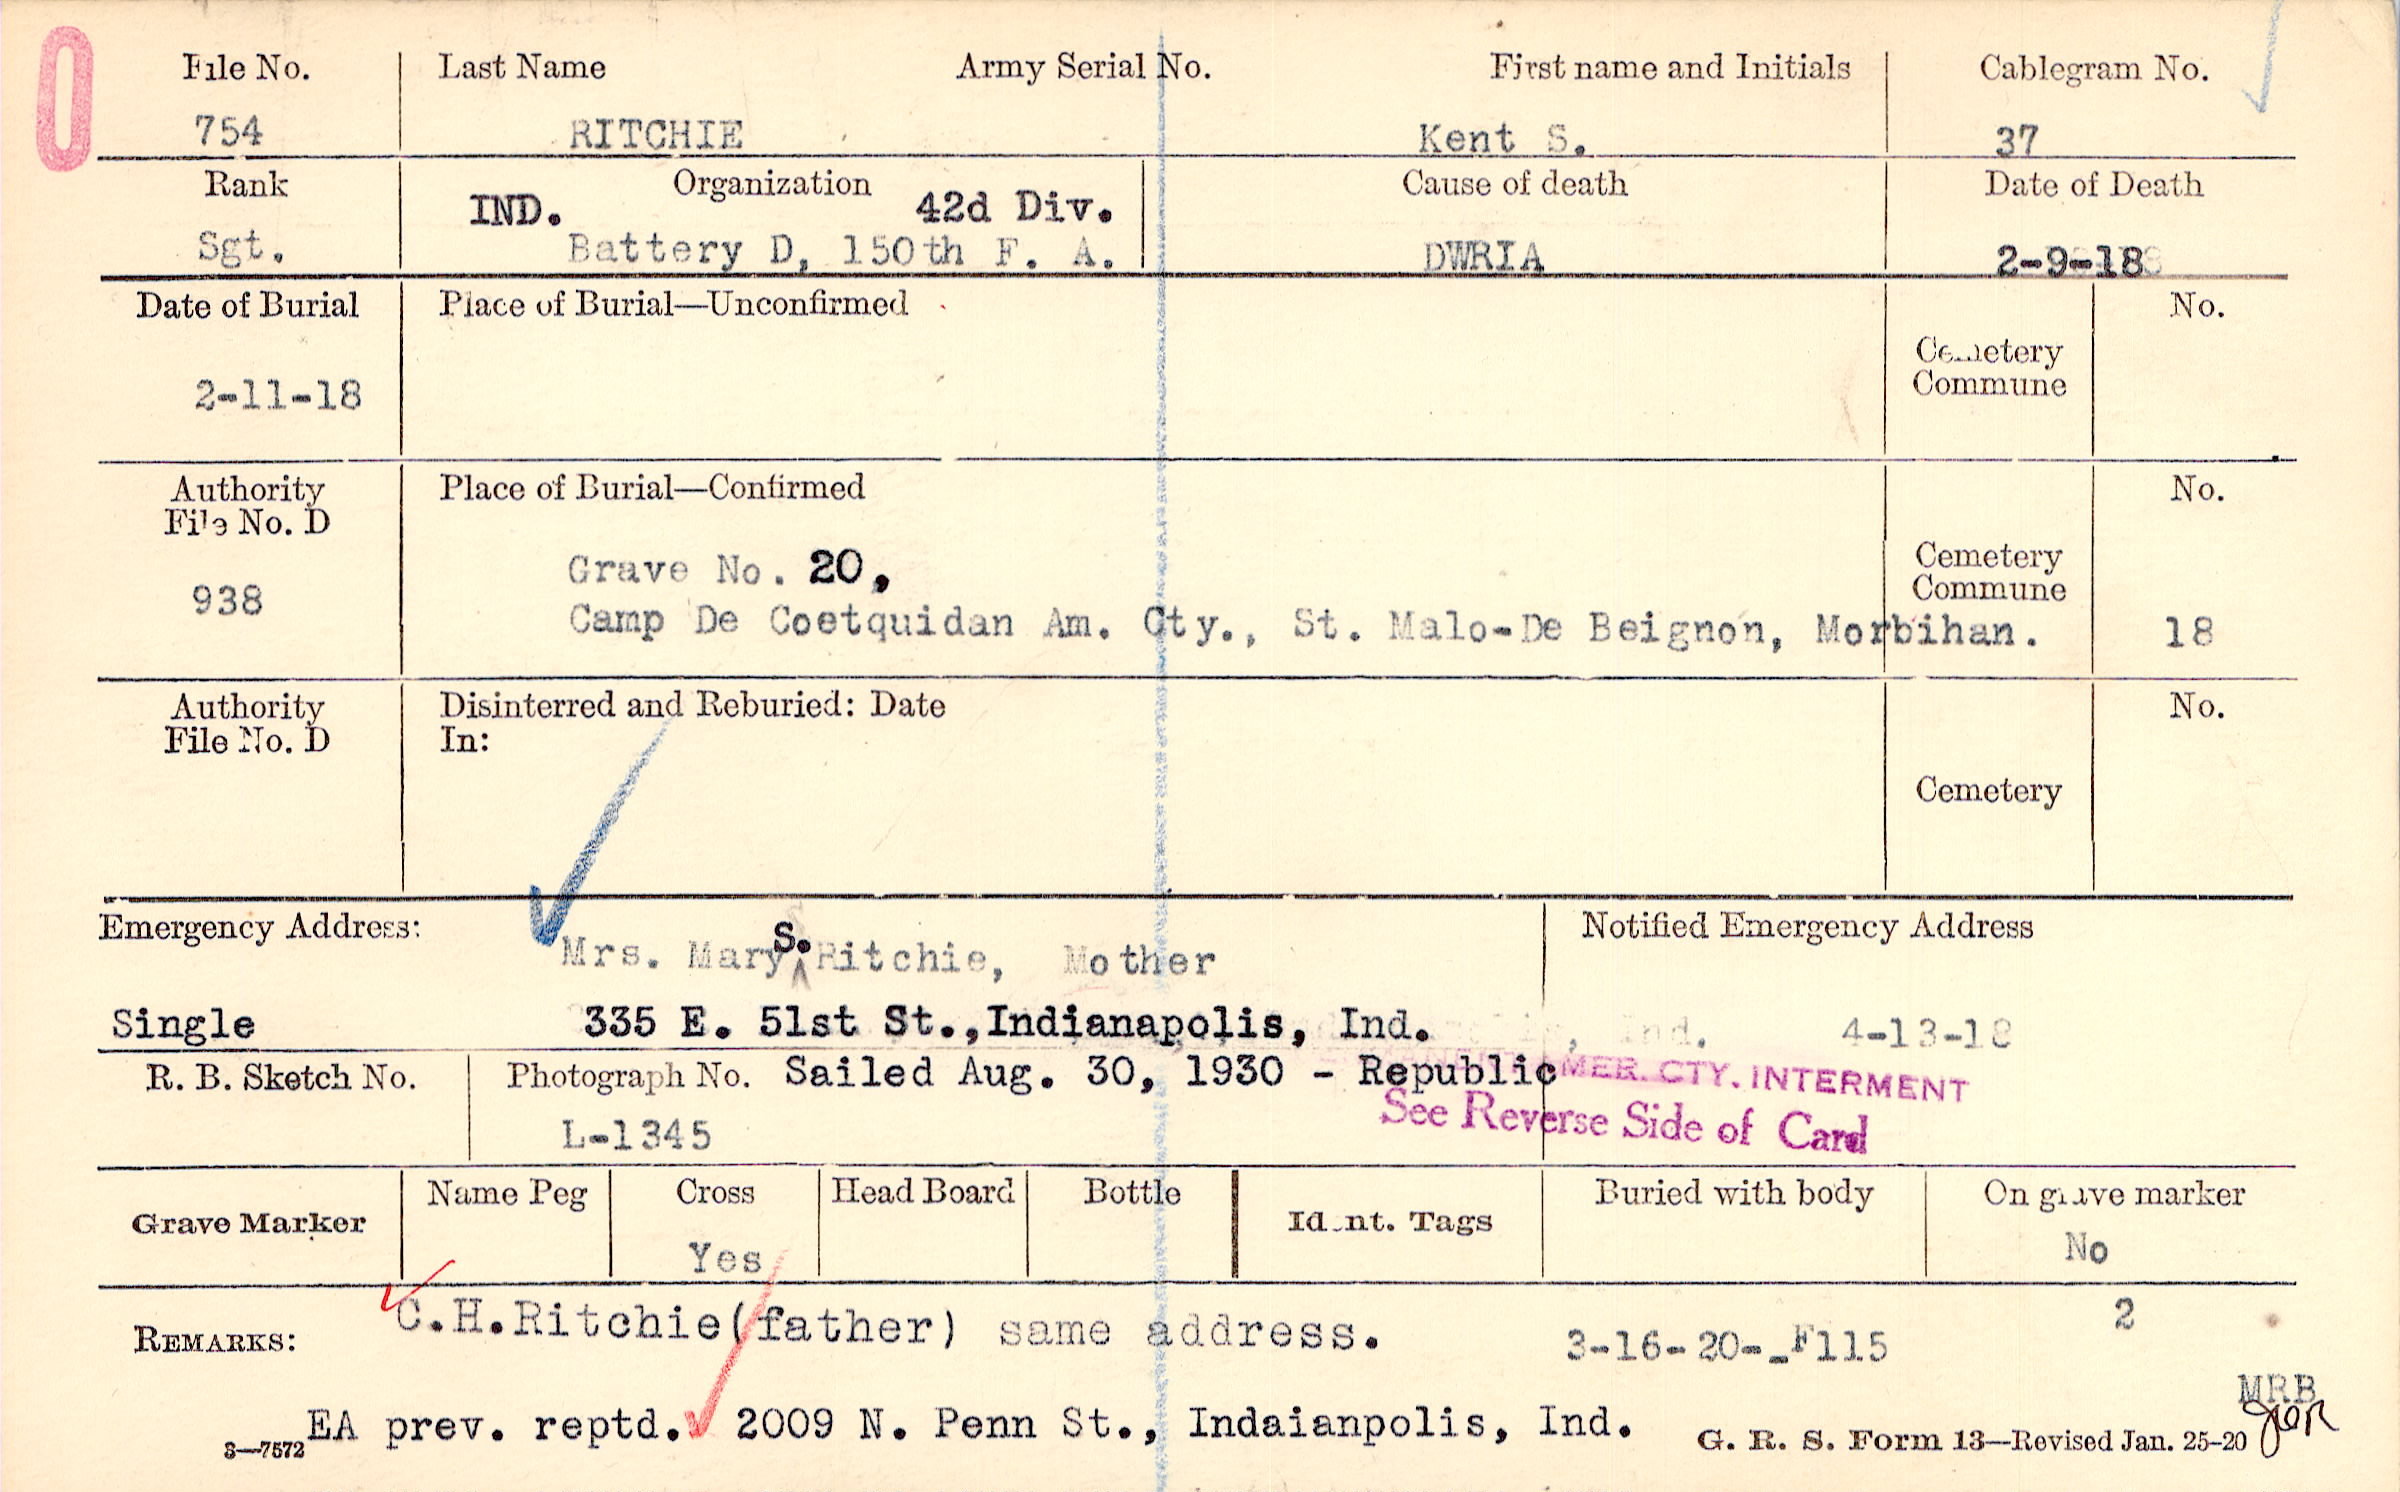 0
File No. Last Name Army Serial No. First name and Initials Cablegram No.
754 RITCHIE Kent S. 37
Rank Organization Cause of death Date of Death
IND. 42d Div.
Sgt. Battery D, 150th F. A. DWRIA 2-9-18
Date of Burial Place of Burial—Unconfirmed No.
Cemetery
Commune
2-11-18
Authority Place of Burial—Confirmed No.
File No. D
Grave No. 20, Cemetery
938 Commune
Camp De Coetquidan Am. Cty., St. Malo-De Beignon, Morbihan. 18
Authority Disinterred and Reburied: Date No.
File No. D In:
Cemetery
Emergency Address: Notified Emergency Address
Mrs. Mary S. Ritchie, Mother
Single 335 E. 51st St., Indianapolis, Ind. Ind. 4-13-18
R. B. Sketch No. Photograph No. Sailed Aug. 30, 1930 - Republic AMER. CTY. INTERMENT
See Reverse Side of Card
L-1345
Grave Marker Name Peg Cross Head Board Bottle Ident. Tags Buried with body On grave marker
Yes No
REMARKS: C.H.Ritchie(father) same address. 3-16-20--F115 2
MRB
EA prev. reptd. 2009 N. Penn St., Indaianpolis, Ind.
3—7572 G. R. S. Form 13—Revised Jan. 25-20